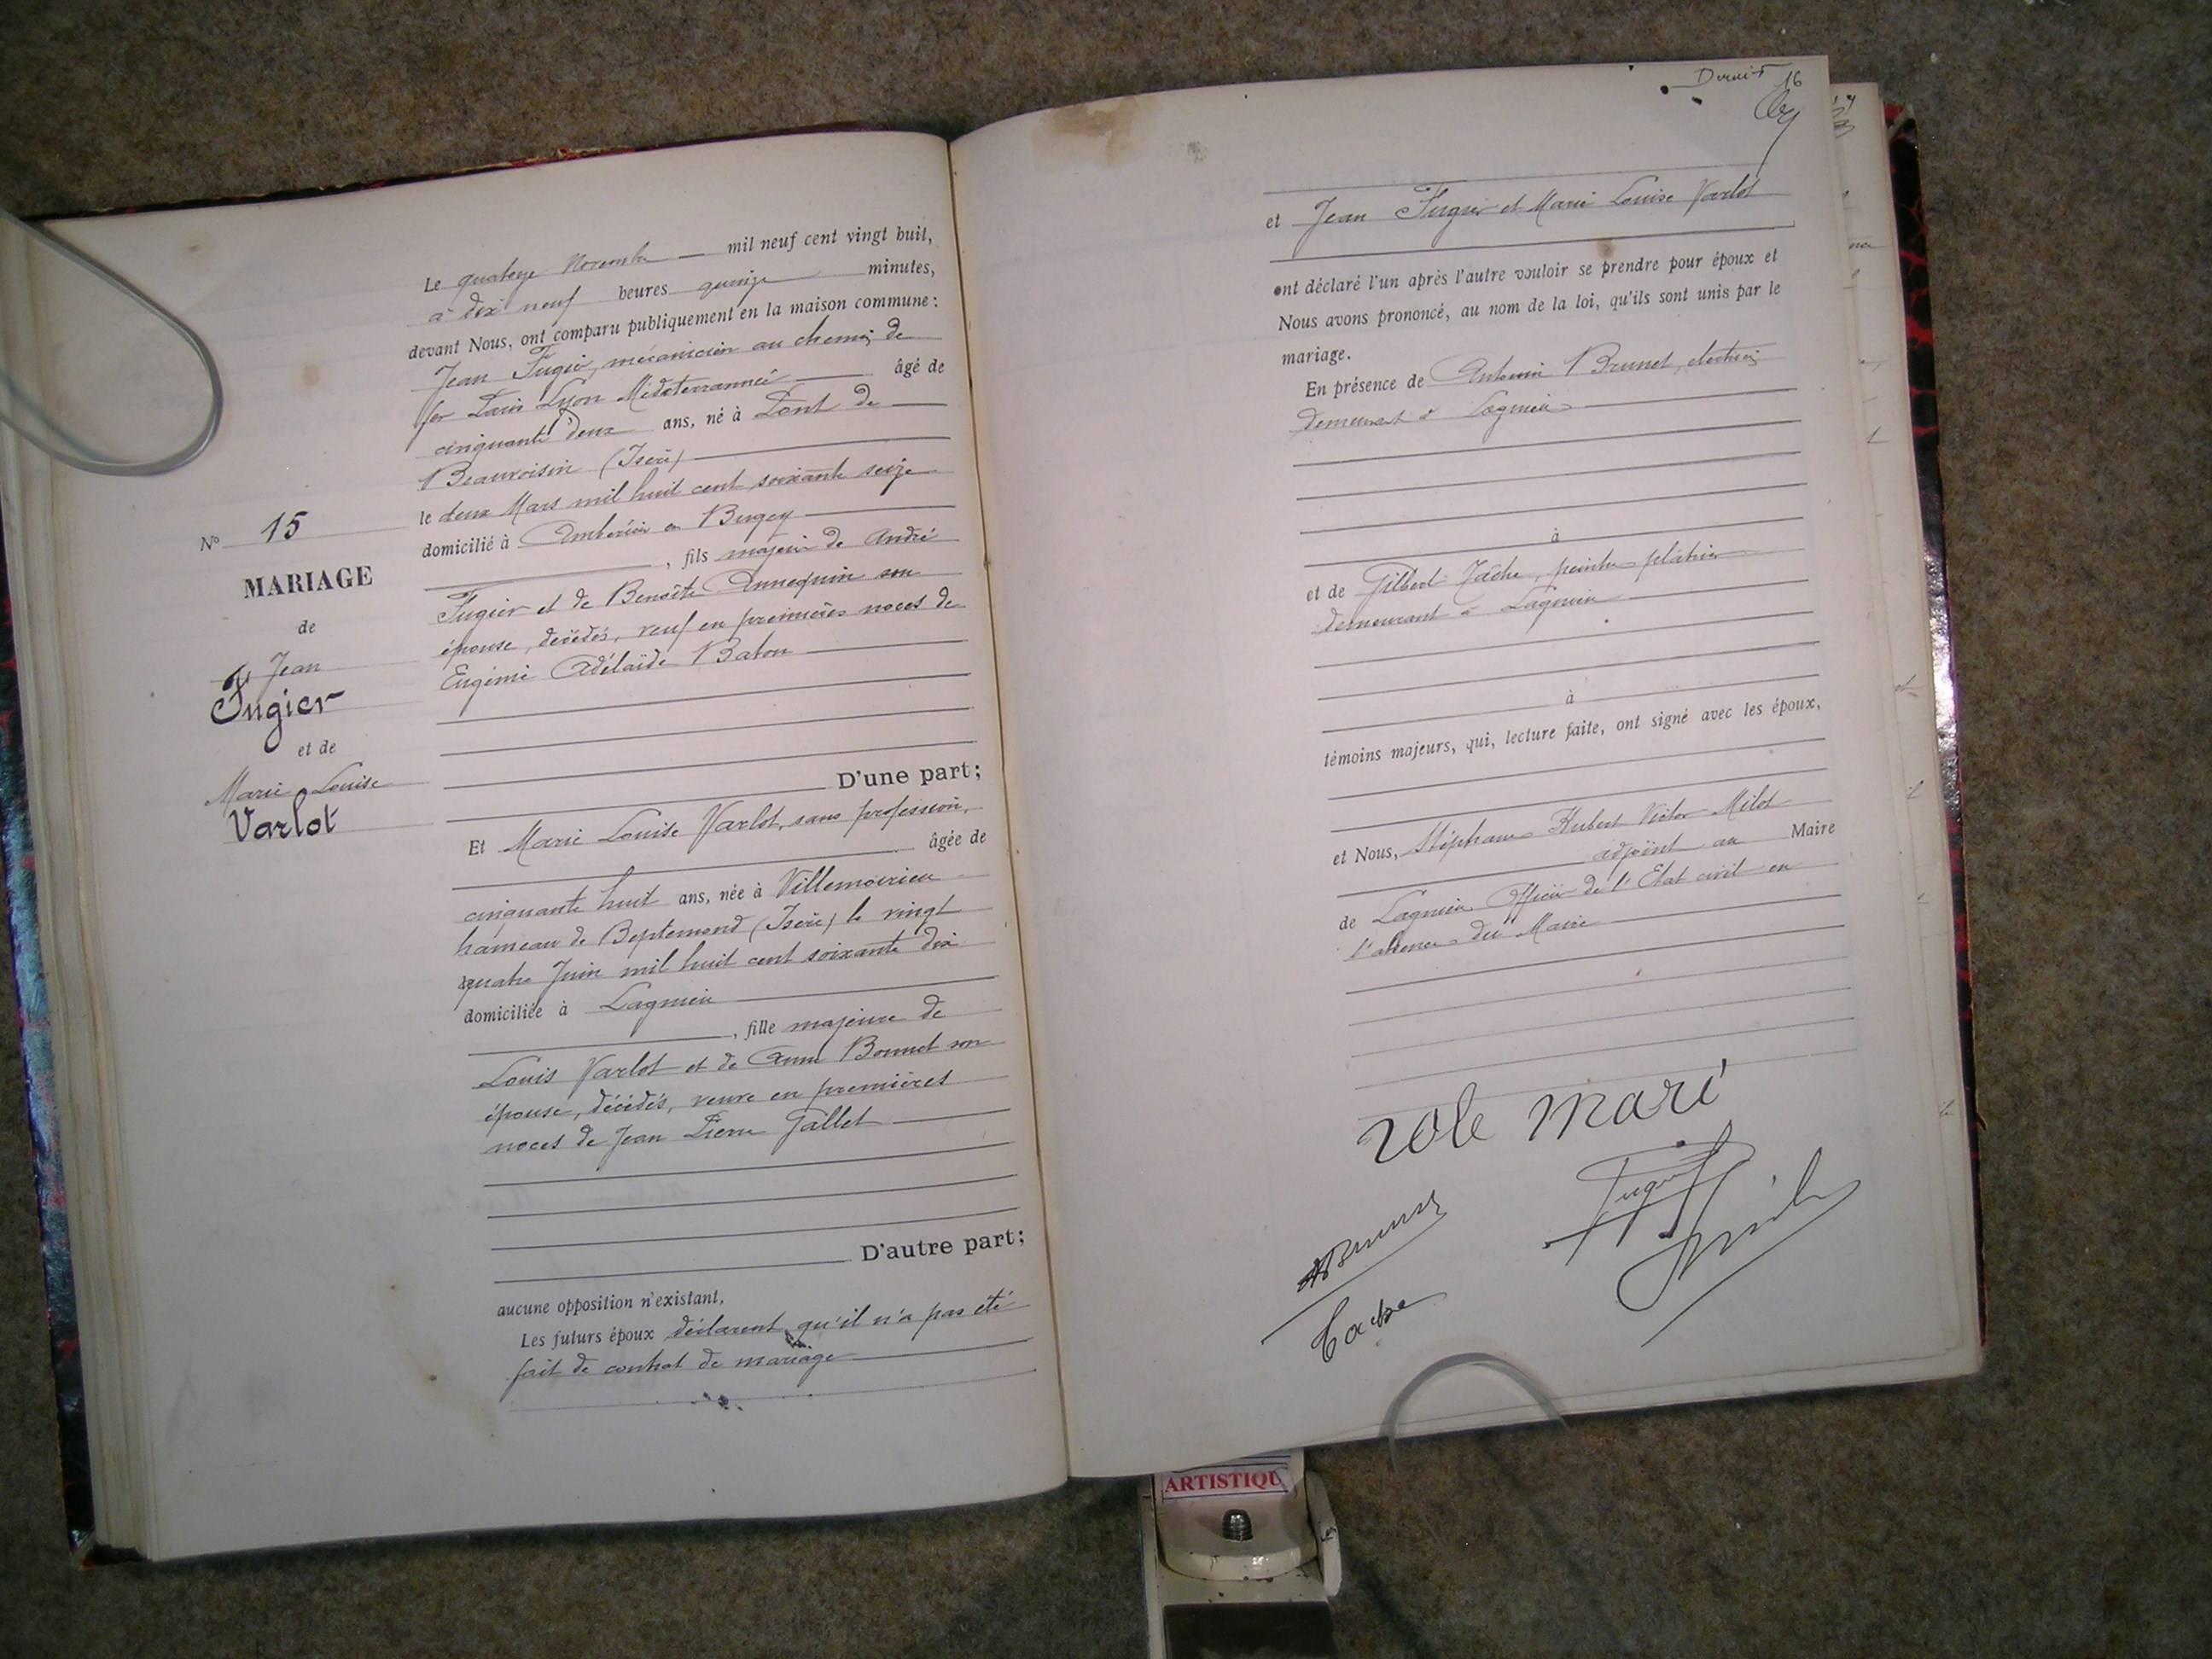 N° 15
MARIAGE
de
Jean
Fugier
et de
Marie Louise
Varlot
Le quatorze Novembre mil neuf cent vingt huit,
à dix neuf heures quinze minutes,
devant Nous, ont comparu publiquement en la maison commune :
Jean Fugier, mécanicien au chemin de
fer Paris Lyon Méditerrannée âgé de
cinquante deux ans, né à Pont de
Beauvoisin (Isère)
le deux Mars mil huit cent soixante seize
domicilié à Ambérieu en Bugey
, fils majeur de André
Fugier et de Benoîte Annequin son
épouse, décédés, veuf en premières noces de
Eugénie Adélaïde Baton
D'une part ;
Et Marie Louise Varlot, sans profession,
âgée de
cinquante huit ans, née à Villemoirieu
hameau de Beptenoud (Isère) le vingt
quatre Juin mil huit cent soixante dix
domiciliée à Lagnieu
, fille majeure de
Louis Varlot et de Anne Bonnet son
épouse, décédés, veuve en premières
noces de Jean Pierre Gallet
D'autre part ;
aucune opposition n'existant,
Les futurs époux déclarent qu'il n'a pas été
fait de contrat de mariage
16
et Jean Fugier et Marie Louise Varlot
ont déclaré l'un après l'autre vouloir se prendre pour époux et
Nous avons prononcé, au nom de la loi, qu'ils sont unis par le
mariage.
En présence de Antonin Brunet, électricien
demeurant à Lagnieu
à
et de Gilbert Tâche, peintre plâtrier
demeurant à Lagnieu
à
témoins majeurs, qui, lecture faite, ont signé avec les époux,
et Nous, Stéphane Hubert Victor Milot
adjoint au Maire
de Lagnieu Officier de l'Etat civil en
l'absence du Maire
Mari
Fugier
Brunet
Tache
ARTISTIQU